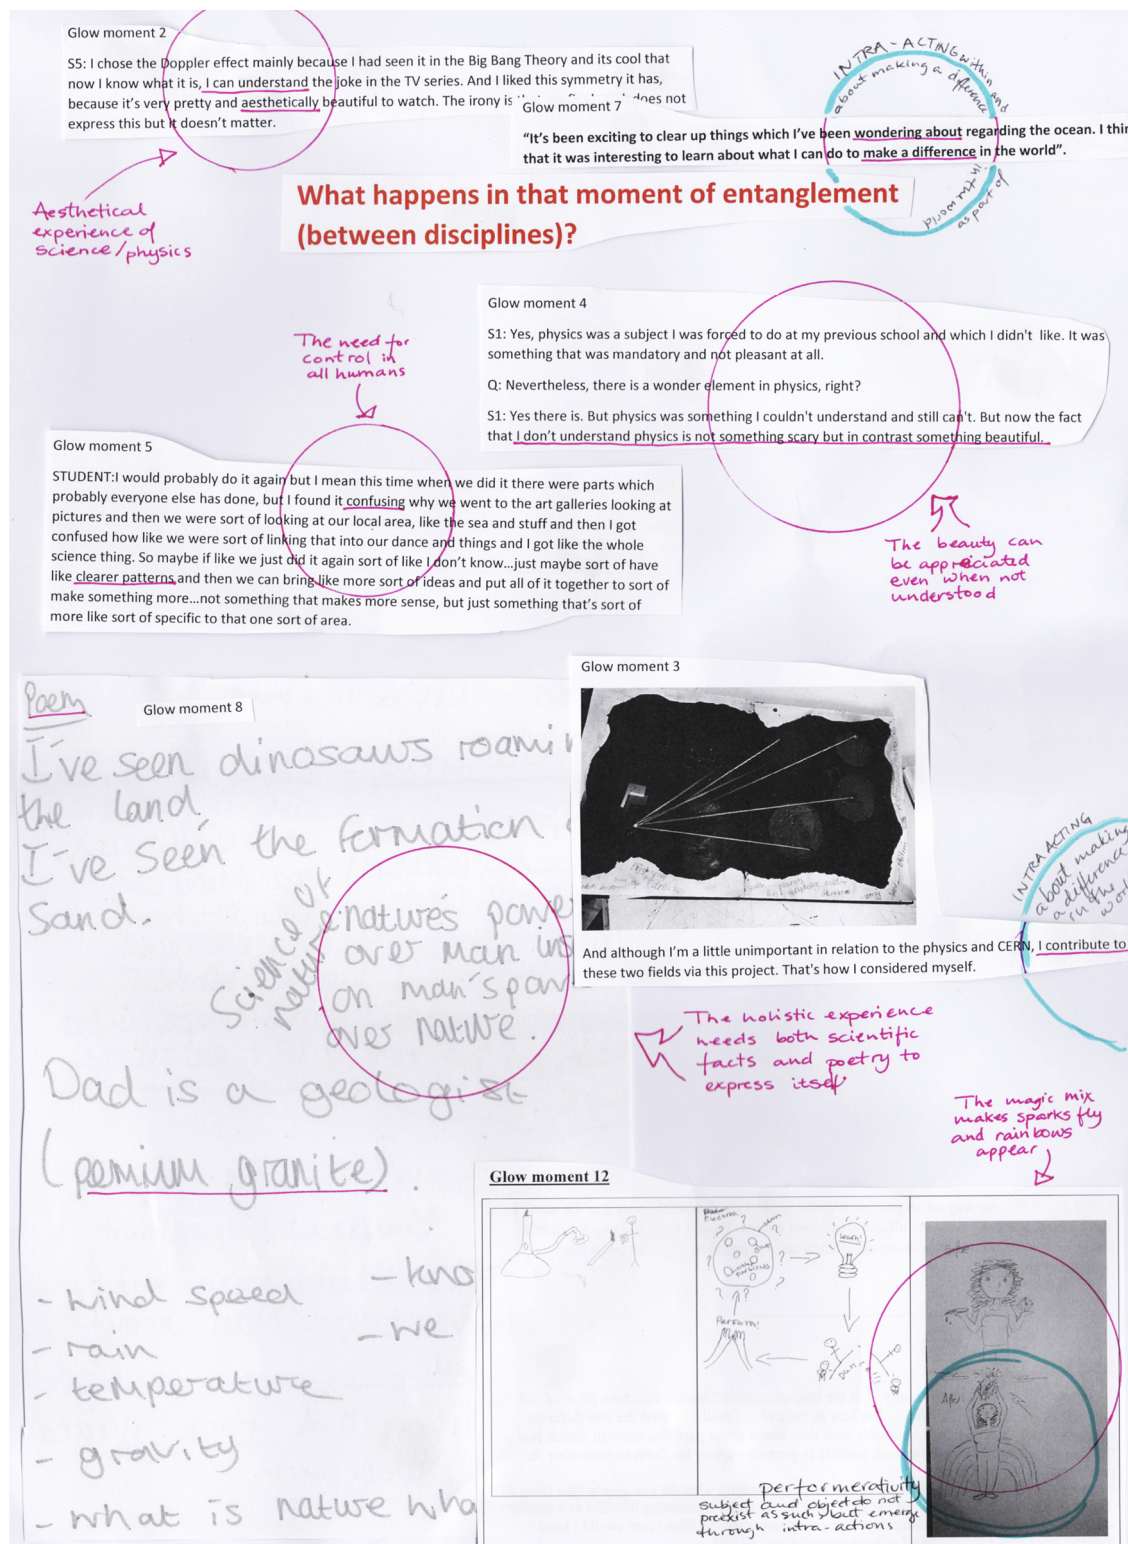 Glow moment 2
S5: I chose the Doppler effect mainly because I had seen it in the Big Bang Theory and its cool that
now I know what it is, I can understand the joke in the TV series. And I liked this symmetry it has,
because it's very pretty and aesthetically beautiful to watch. The irony is does not
express this but it doesn't matter.
Aesthetical
experience of
science/physics
INTRA-ACTING within and
about making a difference
in the world
as part of
Glow moment 7
"It's been exciting to clear up things which I've been wondering about regarding the ocean. I thin
that it was interesting to learn about what I can do to make a difference in the world".
What happens in that moment of entanglement
(between disciplines)?
Glow moment 4
S1: Yes, physics was a subject I was forced to do at my previous school and which I didn't like. It was
something that was mandatory and not pleasant at all.
Q: Nevertheless, there is a wonder element in physics, right?
S1: Yes there is. But physics was something I couldn't understand and still can't. But now the fact
that I don't understand physics is not something scary but in contrast something beautiful.
The beauty can
be appreciated
even when not
understood
The need for
control in
all humans
Glow moment 5
STUDENT:I would probably do it again but I mean this time when we did it there were parts which
probably everyone else has done, but I found it confusing why we went to the art galleries looking at
pictures and then we were sort of looking at our local area, like the sea and stuff and then I got
confused how like we were sort of linking that into our dance and things and I got like the whole
science thing. So maybe if like we just did it again sort of like I don't know...just maybe sort of have
like clearer patterns and then we can bring like more sort of ideas and put all of it together to sort of
make something more...not something that makes more sense, but just something that's sort of
more like sort of specific to that one sort of area.
Poem
Glow moment 8
I've seen dinosaws roamin
the land
I've seen the formation
Sand.
Science of
nature
natures powe
over man ins
on man's pow
over nature.
Dad is a geologist
(pemium granite).
- wind speed
- rain
- temperature
- gravity
- what is nature wha
- kno
- we
Glow moment 3
And although I'm a little unimportant in relation to the physics and CERN, I contribute to
these two fields via this project. That's how I considered myself.
INTRA ACTING
about making
a difference
in the
wor
The holistic experience
needs both scientific
facts and poetry to
express itself
The magic mix
makes sparks fly
and rainbows
appear
Glow moment 12
Learn!
Dance!!!
Perform!
After
performerativity
subject and object do not
preexist as such, but emerge
through intra-actions